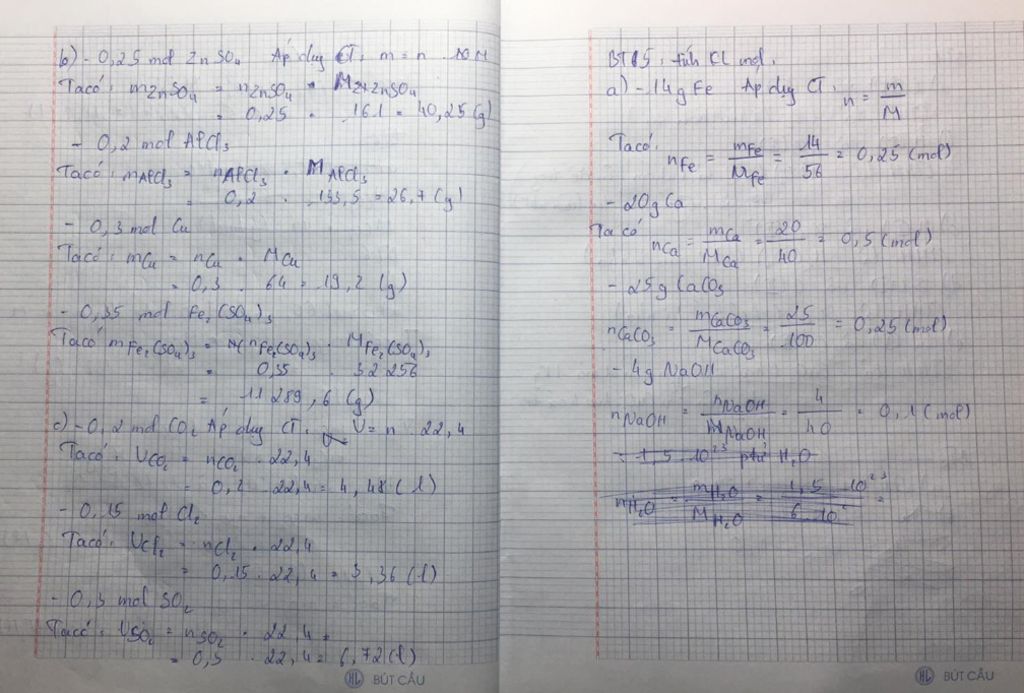 b) - 0,25 mol ZnSO4 Áp dụng CT: m = n . M
Ta có: mZnSO4 = nZnSO4 . MZnSO4
= 0,25 . 161 = 40,25 (g)
- 0,2 mol AlCl3
Ta có: mAlCl3 = nAlCl3 . MAlCl3
= 0,2 . 133,5 = 26,7 (g)
- 0,3 mol Cu
Ta có: mCu = nCu . MCu
= 0,3 . 64 = 19,2 (g)
- 0,35 mol Fe2(SO4)3
Ta có mFe2(SO4)3 = nFe2(SO4)3 . MFe2(SO4)3
= 0,35 . 32 256
= 11 289,6 (g)
c) - 0,2 mol CO2 Áp dụng CT: V = n . 22,4
Ta có: VCO2 = nCO2 . 22,4
= 0,2 . 22,4 = 4,48 (l)
- 0,15 mol Cl2
Ta có: VCl2 = nCl2 . 22,4
= 0,15 . 22,4 = 3,36 (l)
- 0,3 mol SO2
Ta có: VSO2 = nSO2 . 22,4 =
= 0,3 . 22,4 = 6,72 (l)
HL BÚT CÂU
BT15: tính KL mol.
a) - 14g Fe Áp dụng CT: n = m/M
Ta có: nFe = mFe/MFe = 14/56 = 0,25 (mol)
- 20g Ca
Ta có nCa = mCa/MCa = 20/40 = 0,5 (mol)
- 25g CaCO3
nCaCO3 = mCaCO3/MCaCO3 = 25/100 = 0,25 (mol)
- 4g NaOH
nNaOH = nNaOH/MNaOH = 4/40 = 0,1 (mol)
- 1,5 . 10^23 ptử H2O
nH2O = mH2O/MH2O = 1,5 . 10^23/6 . 10^2 =
HL BÚT CÂU